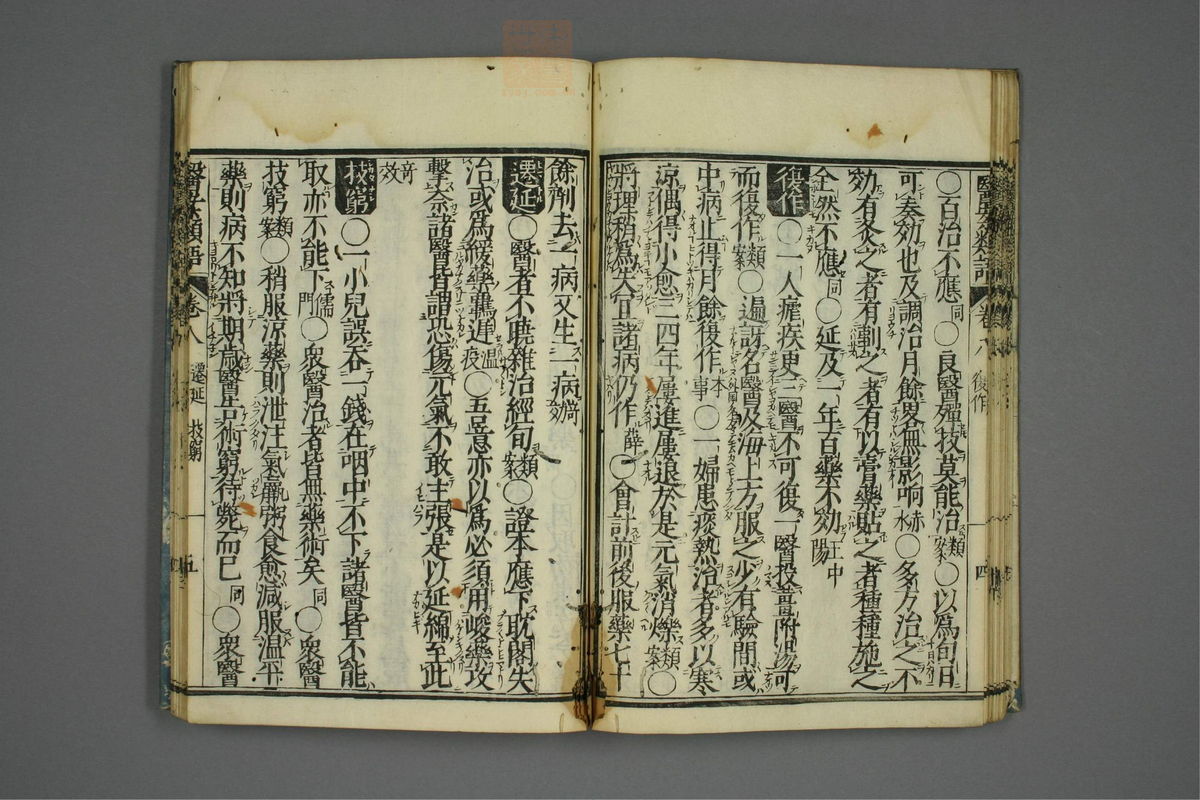 醫學類語 卷八 復作 四
○百治不應同○良醫殫技莫能治類案○以爲旬日
可奏効也及調治月餘畧無影响赤水○多方治之不
効有灸之者有劑之者有以膏藥貼之者種種施之
全然不應同○延及一年百藥不効王中陽
復作○一人瘧疾更三醫不可復一醫投薑附湯可
而復作類案○遍訪名醫及海上方服之少有驗間或
中病止得月餘復作本事○一婦患痰熱治者多以寒
涼偶得小愈三四年屢進屢退於是元氣消爍類案○
將理稍爲失宜諸病仍作薛○會計前後服藥七十
餘劑去一病又生一病竒效
遷延○醫者不曉雜治經旬類案○證本應下耽閣失
治或爲緩藥羈遲温疫○五意亦以爲必須用峻藥攻
擊奈諸醫皆謂恐傷元氣不敢主張是以延綿至此
竒效
技窮○一小兒誤吞一錢在咽中不下諸醫皆不能
取亦不能下儒門○衆醫治者皆無藥術矣同○衆醫
技窮類案○稍服涼藥則泄注氣羸粥食愈減服温平
藥則病不知將期歲醫告術窮待斃而已同○衆醫
醫學類語 卷八 遷延 技窮 五